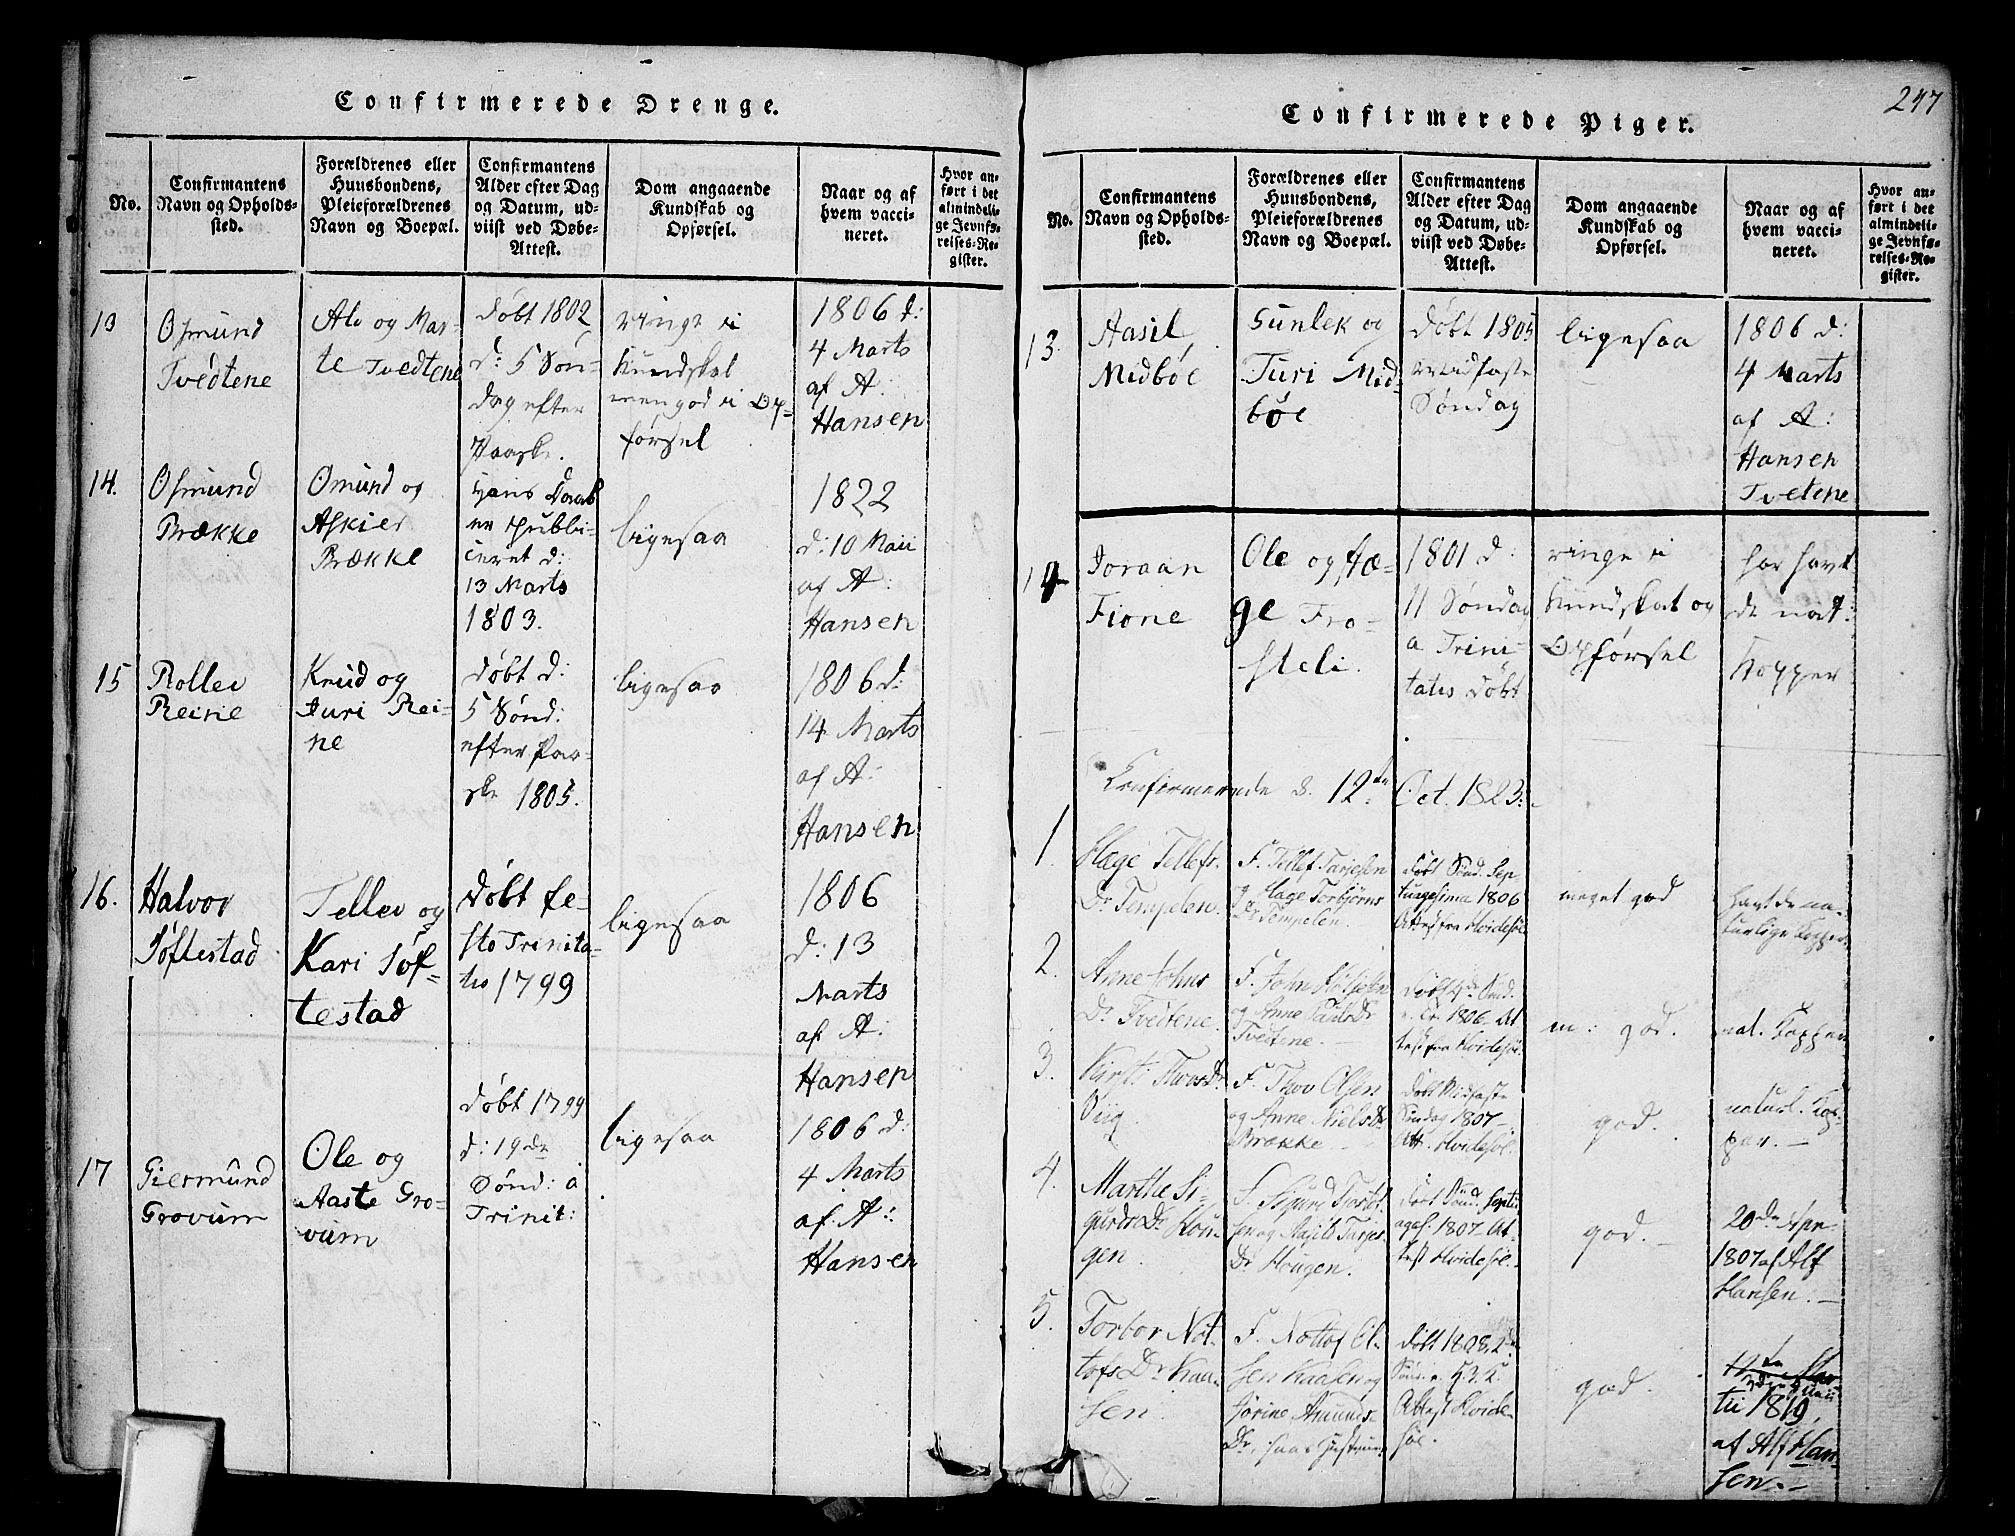 247
Confirmerede Drenge.
No.
Confirmantens
Navn og Opholds-
sted.
Forældrenes eller
Huusbondens,
Pleieforældrenes
Navn og Boepæl.
Confirmantens
Alder efter Dag
og Datum, ud-
viist ved Døbe-
Attest.
Dom angaaende
Kundskab og
Opførsel.
Naar og af
hvem vacci-
neret.
Hvor an-
ført i det
almindeli-
ge Jevnfø-
relses-Re-
gister.
13
Osmund
Tvedtene
Alv og Mar-
te Tvedtene
Døbt 1802
d: 5 Søn-
dag efter
Paaske.
ringe i
Kundskab
men god i Op-
førsel
1806 d:
4 Marts
af A:
Hansen
14.
Osmund
Brække
Omund og
Brække
Hans Daab
er Publi-
ceret d:
13 Marts
1803.
ligesaa
1822
d: 10 Maii
af A:
Hansen
15
Rollev
Reine
Knud og
Juri Rei-
ne
Døbt d:
5 Sønd:
efter Paa-
ske 1805.
ligesaa
1806 d:
14 Marts
af A:
Hansen
16.
Halvor
Søftestad
Tellev og
Kari Søf-
testad
Døbt fe-
sto Trinita-
tis 1799
ligesaa
1806
d: 13
Marts
af A:
Hansen
17
Giermund
Grovum
Ole og
Aaste Gro-
vum
Døbt 1799
d: 19de
Sønd: a
Trinit:
ligesaa
1806 d:
4 Marts
af A:
Hansen
Confirmerede Piger.
No.
Confirmantens
Navn og Opholds-
sted.
Forældrenes eller
Huusbondens,
Pleieforældrenes
Navn og Boepæl.
Confirmantens
Alder efter Dag
og Datum, ud-
viist ved Døbe-
Attest.
Dom angaaende
Kundskab og
Opførsel.
Naar og af
hvem vacci-
neret.
Hvor an-
ført i det
almindeli-
ge Jevnfø-
relses-Re-
gister.
13.
Aasil
Midbøe
Gunlek og
Turi Mid-
bøe
Døbt 1805
Midfaste
Søndag
ligesaa
1806 d:
4 Marts
af A:
Hansen
Tvetene
14
Joraan
Fione
Ole og Hæ-
ge Fro-
steli.
1801 d:
11 Søndag
a Trini-
tatis Døbt
ringe i
Kundskab og
Opførsel
har havt
de nat:
Kopper
Confirmerede d. 12te Oct. 1823.
1.
Hæge Tellefs
Dr Tempelen.
F. Tellef Tarjesen
og Hage Torbjørns
Dr Tempelen.
Døbt Sønd. Sep
tuagesima 1806
Attest fra Hvidesøe
meget god
havt de na-
turlige Kopper
2.
Anne Johns
Dr Tvedtene.
F. John
og Anne Pauls Dr
Tvedtene.
Døbt 4de Sønd.
1806 At
test fra Hvidesøe
m: god.
nat. Kopper
3.
Kirsti Thovs Dr
Viig
F. Thov Olsen
og Anne Niels Dr
Brække
Døbt Midfaste
Søndag 1807
Att. Hvidesøe.
god.
naturl. Kop-
per.
4.
Marthe Si-
gurds Dr Hou-
gen.
F. Sigurd
sen og Aasild Tarjes
Dr Hougen.
Døbt Sønd. Septu
ages. 1807 At-
test Hvidesøe.
god.
20de Apr.
1807 af Alf
Hansen.
5.
Torbor Not
tofs Dr Kaa-
sen
F. Nottof Ol-
sen Kaasen og
Jorine Amunds
Dr,
Døbt 1808 2den
Sønd.
Attest Hvide-
søe.
god.
Mar
tii 1819,
af Alf Han-
sen.